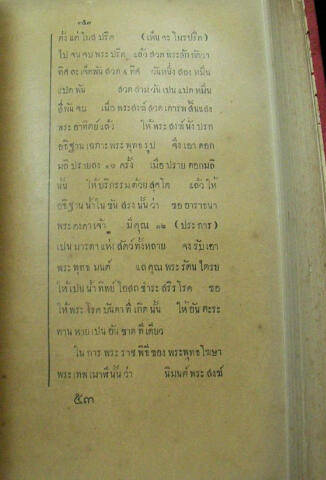 ๓๕๓
ตั้ง แต่ โนส ปริต (เห็น จะ โนรปริต)
ไป จน จบ พระ ปริต แล้ว สวด พระอัก
ทิศ ละ เจ็ดพัน สวด ๔ ทิศ วันหนึ่ง สอง หมื่น
แปด พัน สวด สามวัน เปน แปด หมื่น
สี่ พัน จบ เมื่อ พระสงฆ์ สวด เคารพ สิ้นแสง
พระ อาทิตย์ แล้ว ให้ พระ สงฆ์ นั่ง ปรก
อธิฐาน เฉภาะ พระ พุทธ รูป จึง เอา ดอก
มลิ ปรายลง ๑๐ ครั้ง เมื่อ ปราย ดอกมลิ
นั้น ให้ บริกรรม ด้วย สุคโต แล้ว ให้
อธิฐาน น้ำ ใน ขัน สรง นั้น ว่า ขอ อาราธนา
พระ องคา เจ้า มี คุณ ๑๒ (ประการ)
เปน มารดา แห่ง สัตว์ ทั้งหลาย จง รับ เอา
พระ พุทธ มนต์ แล คุณ พระ รัตน ไตรย
ให้ เปน น้ำ ทิพย์ โอสถ ชำระ สรีร โรค ขอ
ให้ พระ โรค บันดา ที่ เกิด นั้น ให้ อันตะระ
ทาน หาย เปน อัน ขาด ที เดียว
ใน การ พระ ราช พิธี ของ พระพุทธ โฆษา
พระ เทพ เมาฬี นั้น ว่า นิมนต์ พระ สงฆ์
๕๓